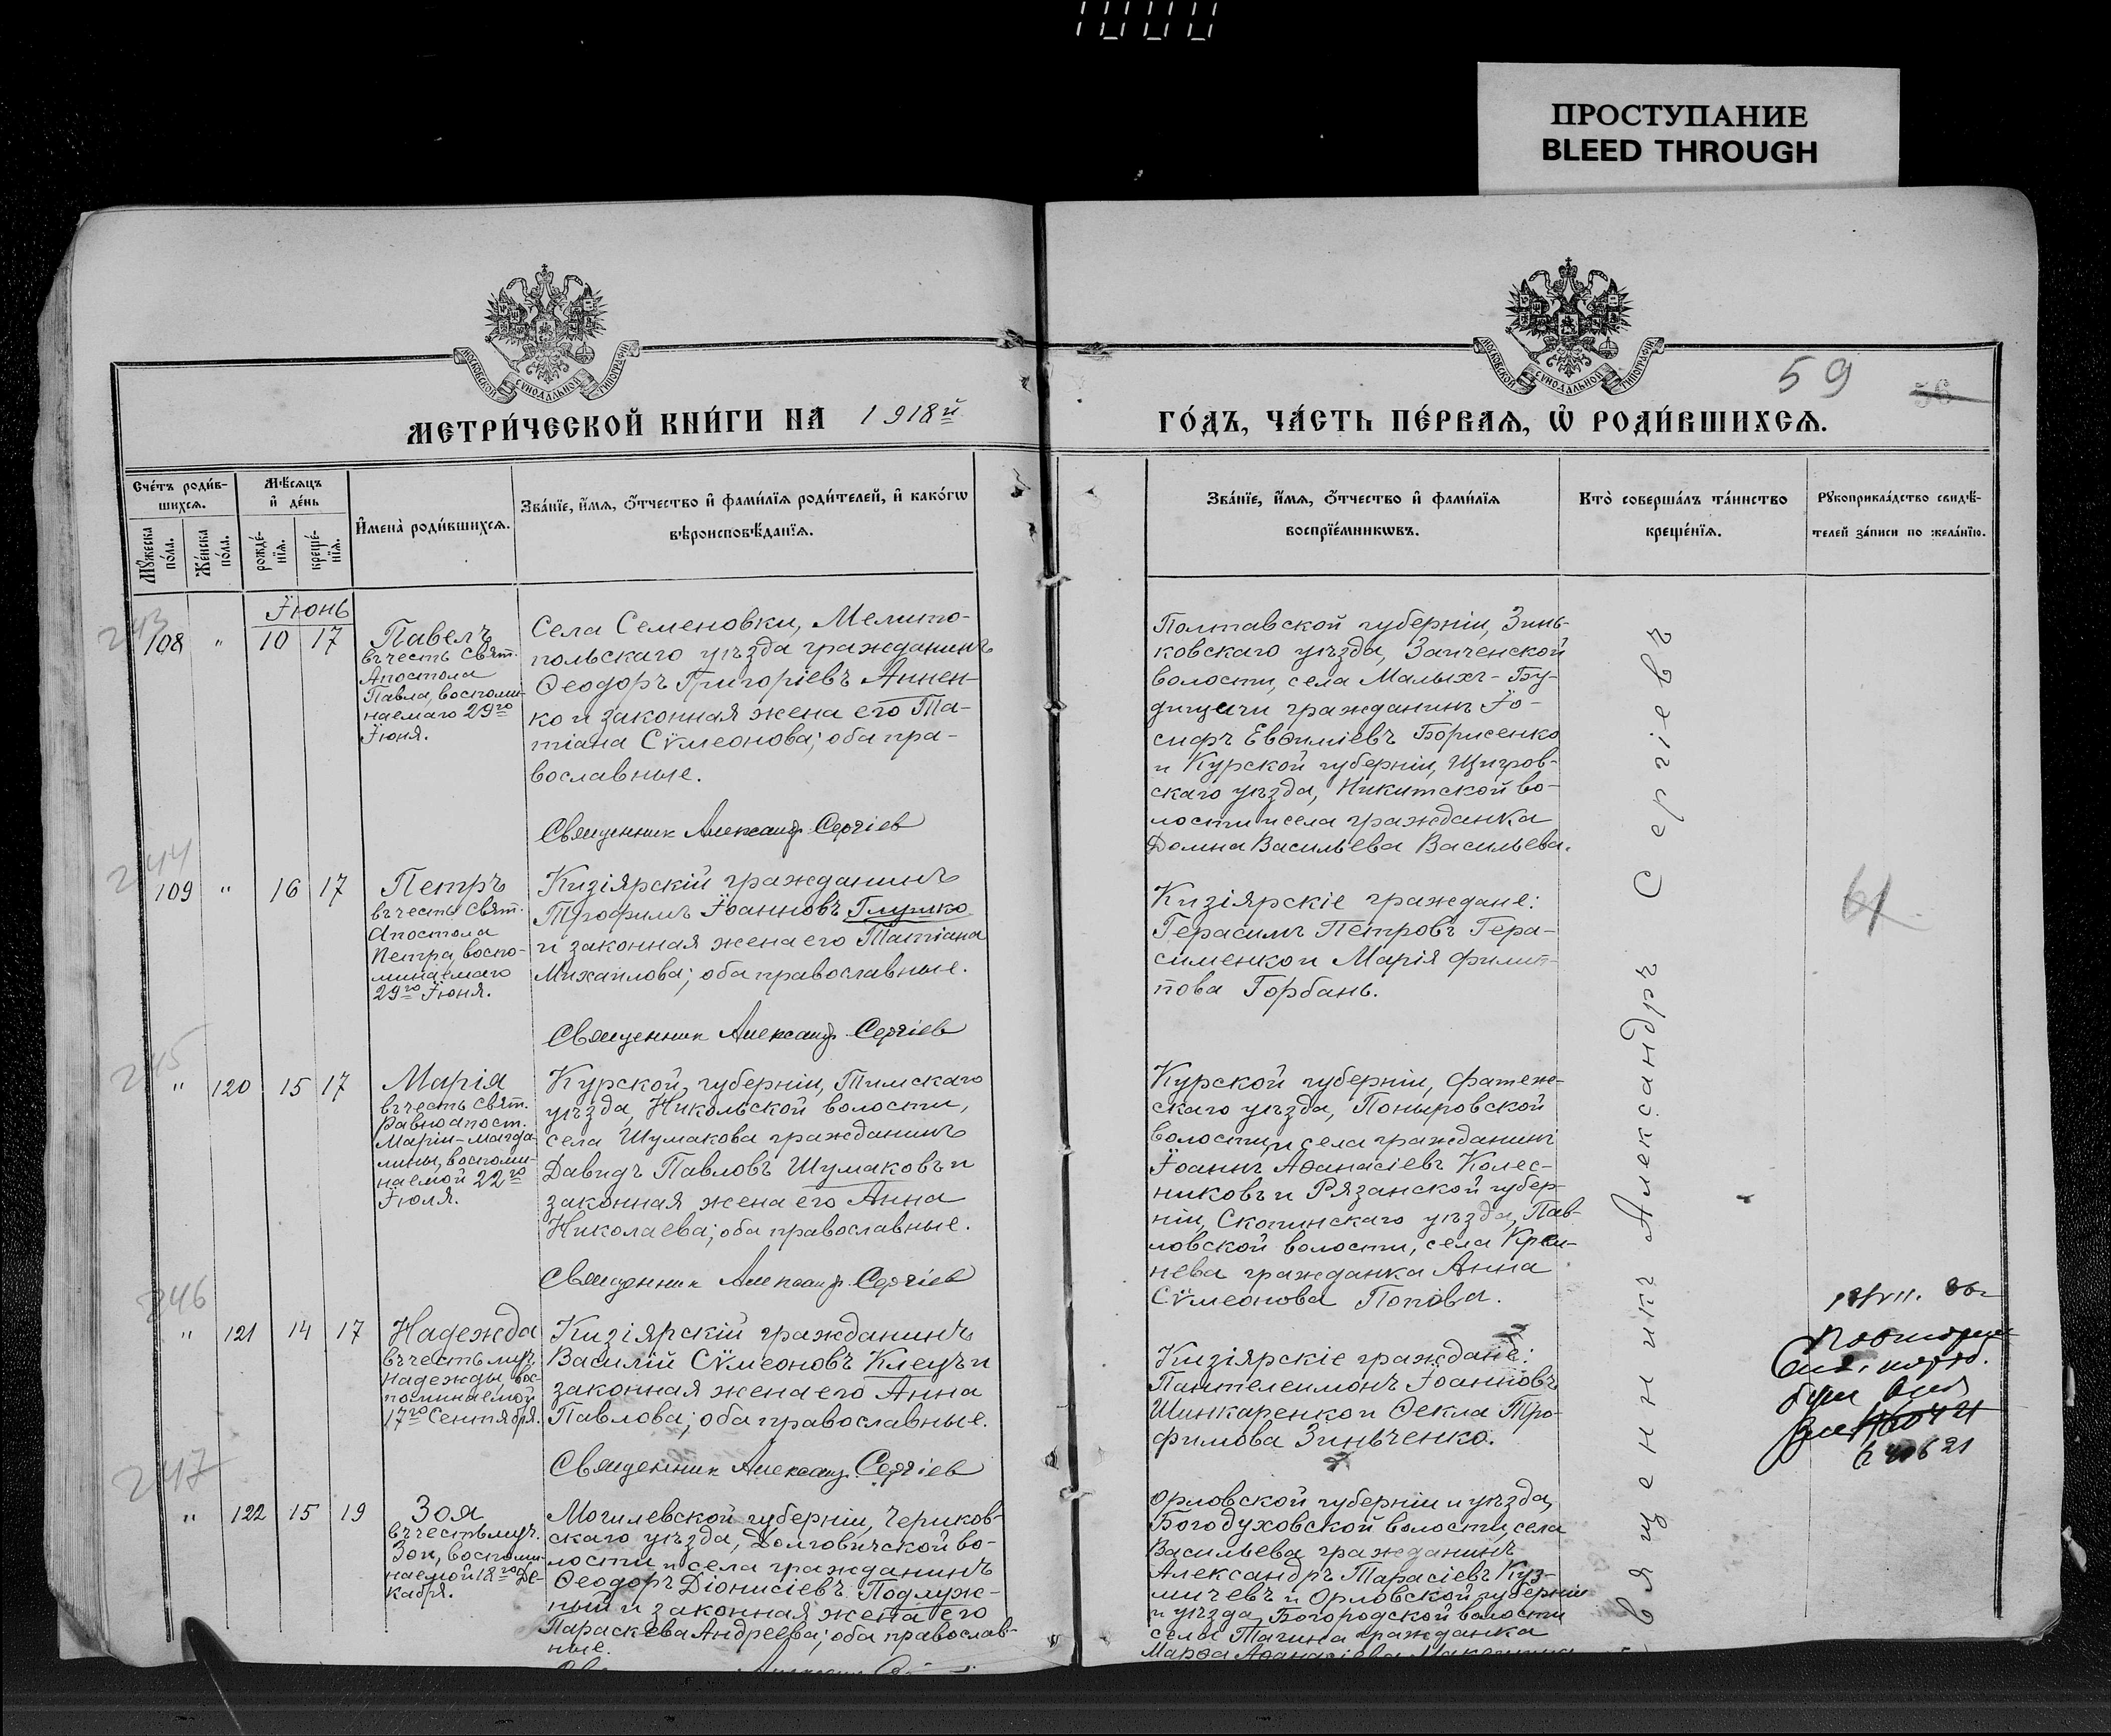 ПРОСТУПАНИЕ
BLEED THROUGH
МОСКОВСКОЙ СѴНОДАЛЬНОЙ ТИПОГРАФІИ
МОСКОВСКОЙ СѴНОДАЛЬНОЙ ТИПОГРАФІИ
59 56
МЕТРИ́ЧЕСКОЙ КНИ́ГИ НА 1918й
ГО́ДЪ, ЧА́СТЬ ПЕ́РВАЯ, Ѽ РОДИ́ВШИХСЯ.
Счетъ роди́в-
шихся.
Мꙋжеска по́ла.
Же́нска по́ла.
Мѣ́сяцъ
и де́нь
рожде́-
нїя.
креще́-
нїя.
И҆мена̀ роди́вшихся.
Зва́нїе, и҆́мя, ѻ҆́тчество и҆ фами́лїя роди́телей, и҆ како́гѡ
вѣроисповѣ́данїя.
Зва́нїе, и҆́мя, ѻ҆́тчество и҆ фами́лїя
воспрїе́мникѡвъ.
Кто̀ соверша́лъ та́инство
креще́нїя.
Рꙋкоприкла́дство свидѣ́-
телей за́писи по жела́нїю.
Їюнь
243
108 " 10 17
Павелъ
въ честь Свят.
Апостола
Павла, воспоми-
наемаго 29го
Їюня.
Села Семеновки, Мелито-
польскаго уѣзда гражданинъ
Ѳеодоръ Григоріевъ Аннен-
ко и законная жена его Та-
тіана Сѵмеонова; оба пра-
вославные.
Священник Александр Сергіев
Полтавской губерніи, Зинь-
ковскаго уѣзда, Заиченской
волости, села Малыхъ-Бу-
дищи гражданинъ Їо-
сифъ Евѳиміевъ Борисенко
и Курской губерніи, Щигров-
скаго уѣзда, Никитской во-
лости и села гражданка
Домна Васильева Васильева.
244
109 " 16 17
Петръ
въ честь Свят.
Апостола
Петра, воспо-
минаемаго
29го Їюня.
Кизіярскій гражданинъ
Трофимъ Їоанновъ Глушко
и законная жена его Татіана
Михаилова; оба православные.
Священник Александр Сергіев
Кизіярскіе граждане:
Герасимъ Петровъ Гера-
сименко и Марія Филип-
пова Горбань.
61
245
" 120 15 17
Марія
въ честь Свят.
Равноапост.
Маріи-Магда-
лины, воспоми-
наемой 22го
Їюля.
Курской, губерніи, Тимскаго
уѣзда, Никольской волости,
села Шумакова гражданинъ
Давидъ Павловъ Шумаковъ и
законная жена его Анна
Николаева; оба православные.
Священник Александр Сергіев
Курской губерніи, Фатеж-
скаго уѣзда, Поныровской
волости, и села гражданинъ
Їоаннъ Аѳанасіевъ Колес-
никовъ и Рязанской губер-
ніи, Скопинскаго уѣзда, Пав-
ловской волости, села Крем-
нева гражданка Анна
Сѵмеонова Попова.
246
" 121 14 17
Надежда
въ честь муч.
Надежды, вос-
поминаемой
17го Сентября.
Кизіярскій гражданинъ
Василій Сѵмеоновъ Клецъ и
законная жена его Анна
Павлова; оба православные.
Священник Александр Сергіев
Кизіярскіе граждане:
Пантелеимонъ Їоанновъ
Шинкаренко и Ѳекла Тро-
фимова Зиньченко.
247
" 122 15 19
Зоя
въ честь муч.
Зои, воспоми-
наемой 18го Де-
кабря.
Могилевской губерніи, Чериков-
скаго уѣзда, Долговичской во-
лости и села гражданинъ
Ѳеодоръ Діонисіевъ Подлуж-
ный и законная жена его
Параскева Андреева; оба православ-
ные.
Орловской губерніи и уѣзда,
Богодуховской волости, села
Васильева гражданинъ
Александръ Тарасіевъ Куз-
мичевъ и Орловской губерніи
и уѣзда, Богородской волости
села Тагина гражданка
Марѳа Аѳанасіева
Священникъ Александръ Сергіевъ